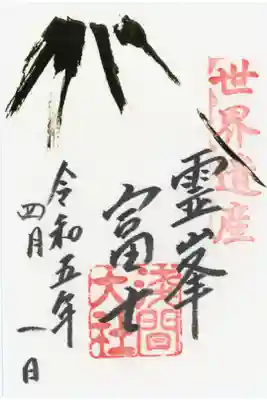 世界遺産
霊峰
富士
浅間
大社
令和五年
四月一日